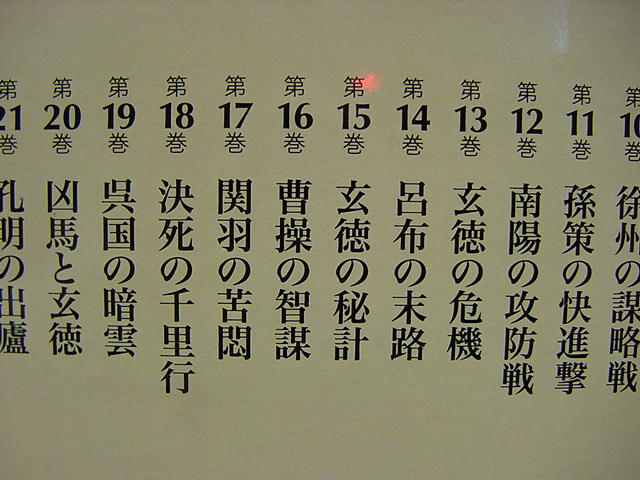 第10巻 徐州の謀略戦
第11巻 孫策の快進撃
第12巻 南陽の攻防戦
第13巻 玄徳の危機
第14巻 呂布の末路
第15巻 玄徳の秘計
第16巻 曹操の智謀
第17巻 関羽の苦悶
第18巻 決死の千里行
第19巻 呉国の暗雲
第20巻 凶馬と玄徳
第21巻 孔明の出廬